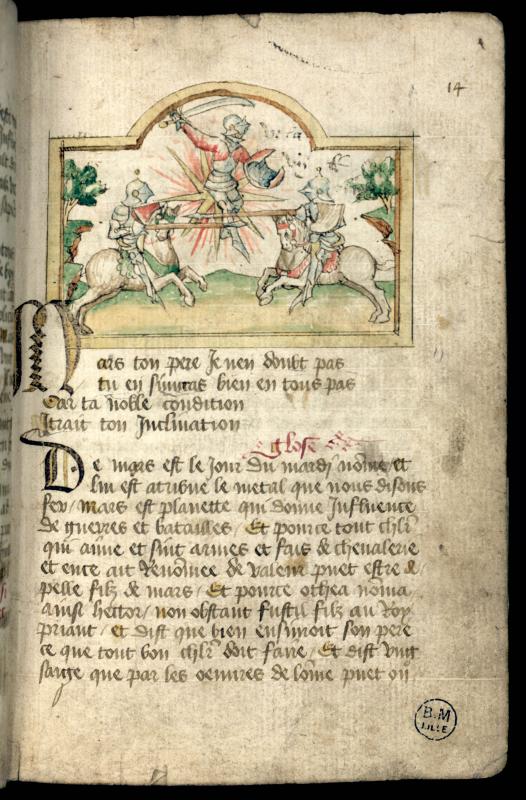 14
Mars ton pere Je nen doubt pas
tu en suiuras bien en tous pas
Car ta noble condition
Itrait ton Inclination
glose
De mars est le Jour du mardi nome et
lui est atribue le metal que nous disons
fer / mars est planette qui donne Influence
de guerres et batailles / Et pource tout chlr
qui aime et suit armes et fais de cheualerie
et ence ait Renomee de valeur puet estre a
pelle filz de mars / Et pource othea noma
ainsi hector / non obstant fust il filz au Roy
priant / et dist que bien ensuiroit son pere
ce que tout bon chlr doit faire / Et dist vng
saige que par les oeuures de lome puet on
B.M
LILLE